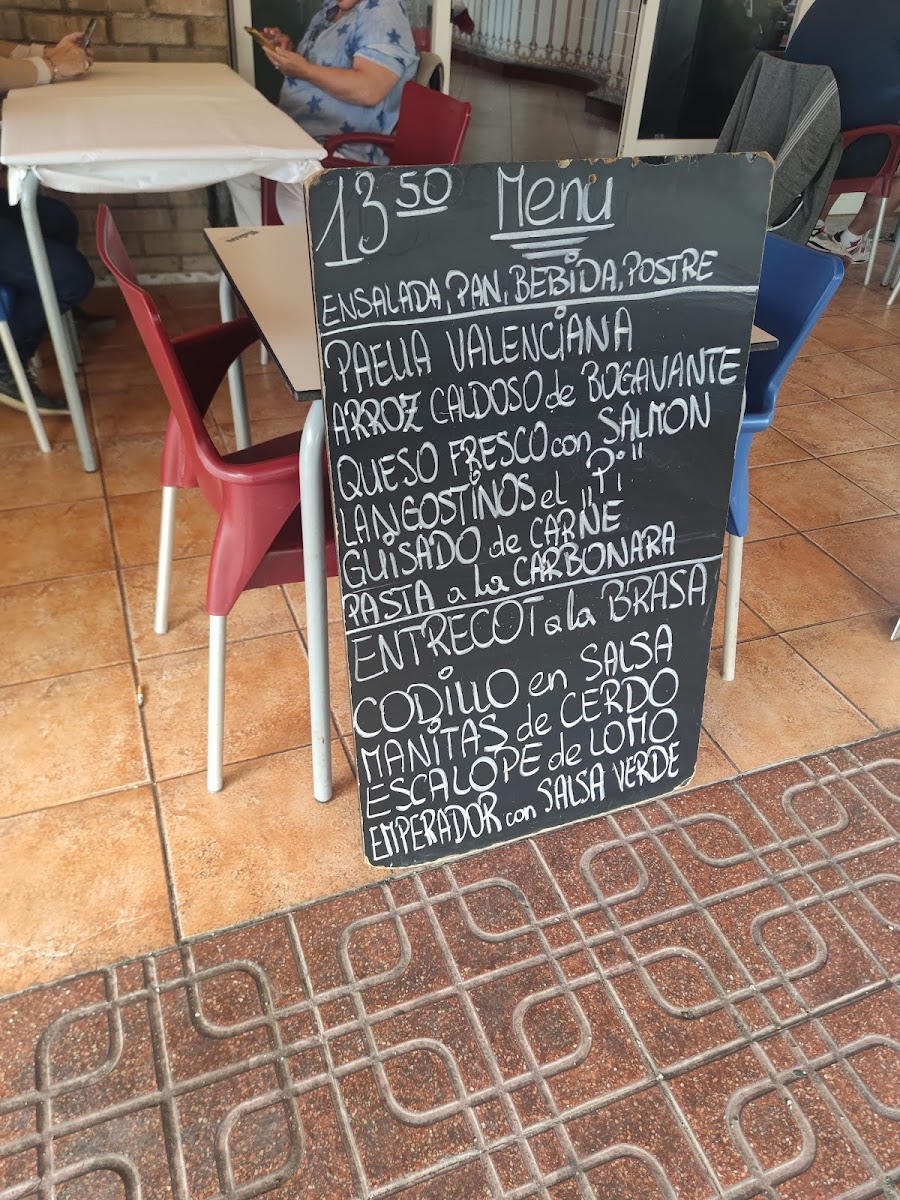 13 50 Menu
ENSALADA, PAN, BEBIDA, POSTRE
PAELLA VALENCIANA
ARROZ CALDOSO de BOGAVANTE
QUESO FRESCO con SALMON
LANGOSTINOS el "Pi"
GUISADO de CARNE
PASTA a la CARBONARA
ENTRECOT a la BRASA
CODILLO en SALSA
MANITAS de CERDO
ESCALOPE de LOMO
EMPERADOR con SALSA VERDE